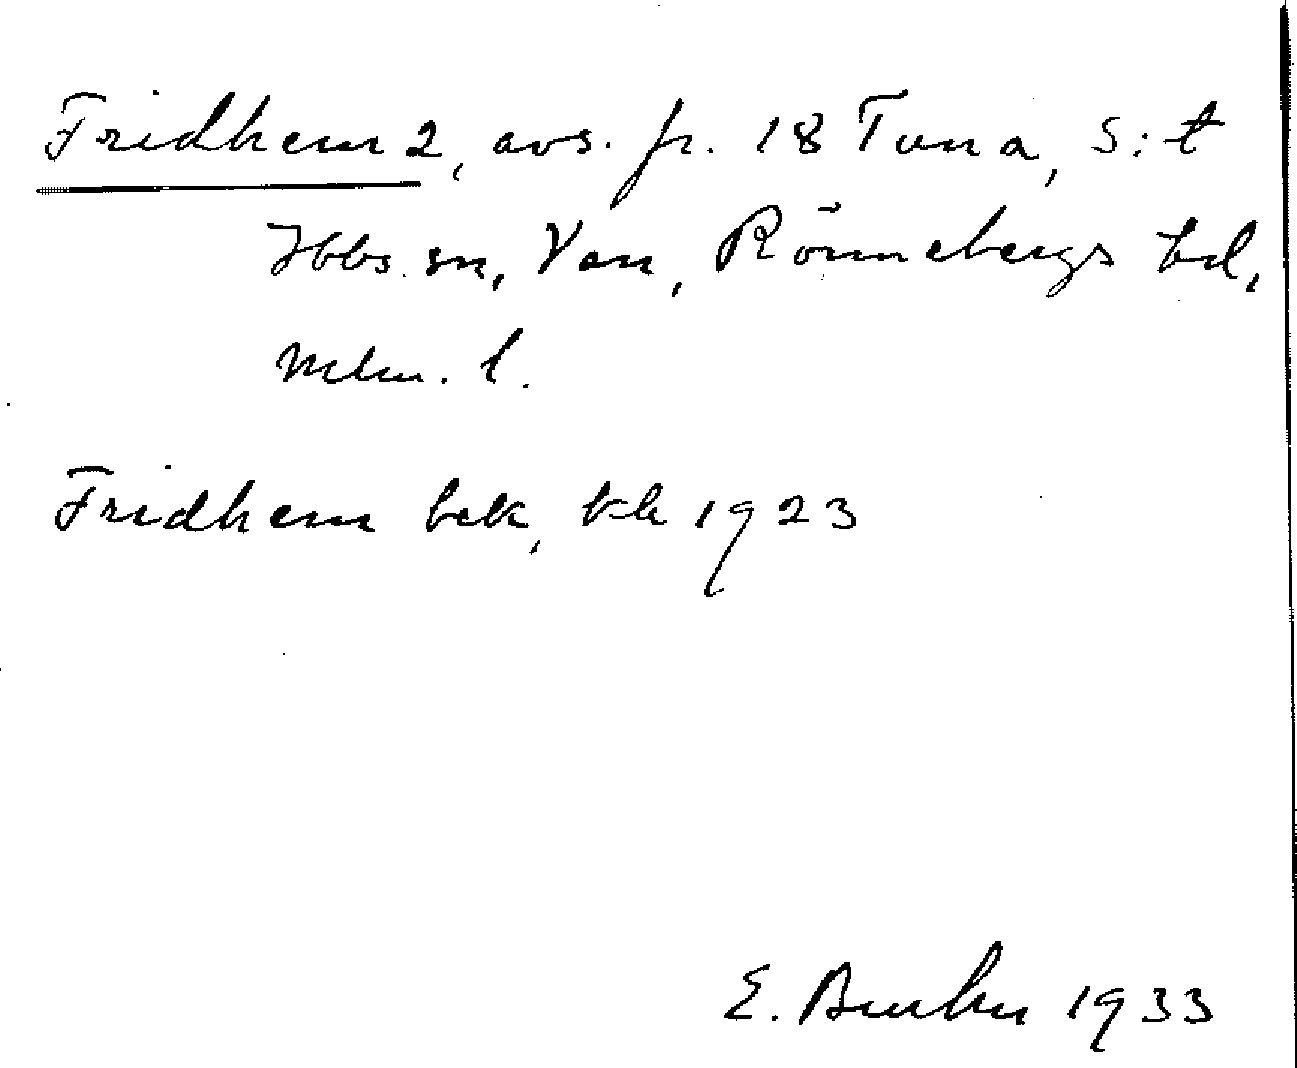 Fridhem 2, avs. fr. 18 Tuna, S:t
Ibbs sn, Ven, Rönnebergs hd,
Mlm. l.
Fridhem bek, kk 1923
E. 1933